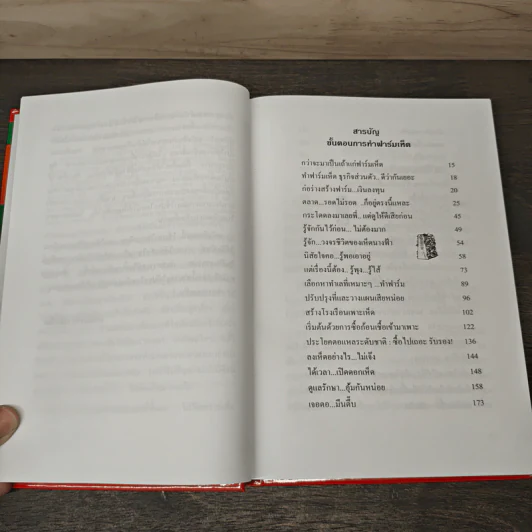 สารบัญ
ขั้นตอนการทำฟาร์มเห็ด
กว่าจะมาเป็นเถ้าแก่ฟาร์มเห็ด 15
ทำฟาร์มเห็ด ธุรกิจส่วนตัว.. ดีว่ากันเยอะ 18
ก่อร่างสร้างฟาร์ม...เงินลงทุน 20
ตลาด...รอดไม่รอด ..ก็อยู่ตรงนี้แหละ 25
กระโดดลงมาเลยพี่...แต่ดูให้ดีเสียก่อน 45
รู้จักกันไว้ก่อน... ไม่ต้องมาก 49
รู้จัก...วงจรชีวิตของเห็ดนางฟ้า 54
นิสัยใจคอ...รู้พอเอาอยู่ 58
แต่เรื่องนี้ต้อง.. รู้พุง...รู้ไส้ 73
เลือกหาทำเลที่เหมาะๆ ...ทำฟาร์ม 89
ปรับปรุงที่และวางแผนเสียหน่อย 96
สร้างโรงเรือนเพาะเห็ด 102
เริ่มต้นด้วยการซื้อก้อนเชื้อเข้ามาเพาะ 122
ประโยคตอแหลระดับชาติ : ซื้อไปเถอะ รับรอง! 136
ลงเห็ดอย่างไร...ไม่เจ๊ง 144
ได้เวลา...เปิดดอกเห็ด 148
ดูแลรักษา...อุ้มกันหน่อย 158
เจอตอ...มึนตึ๊บ 173